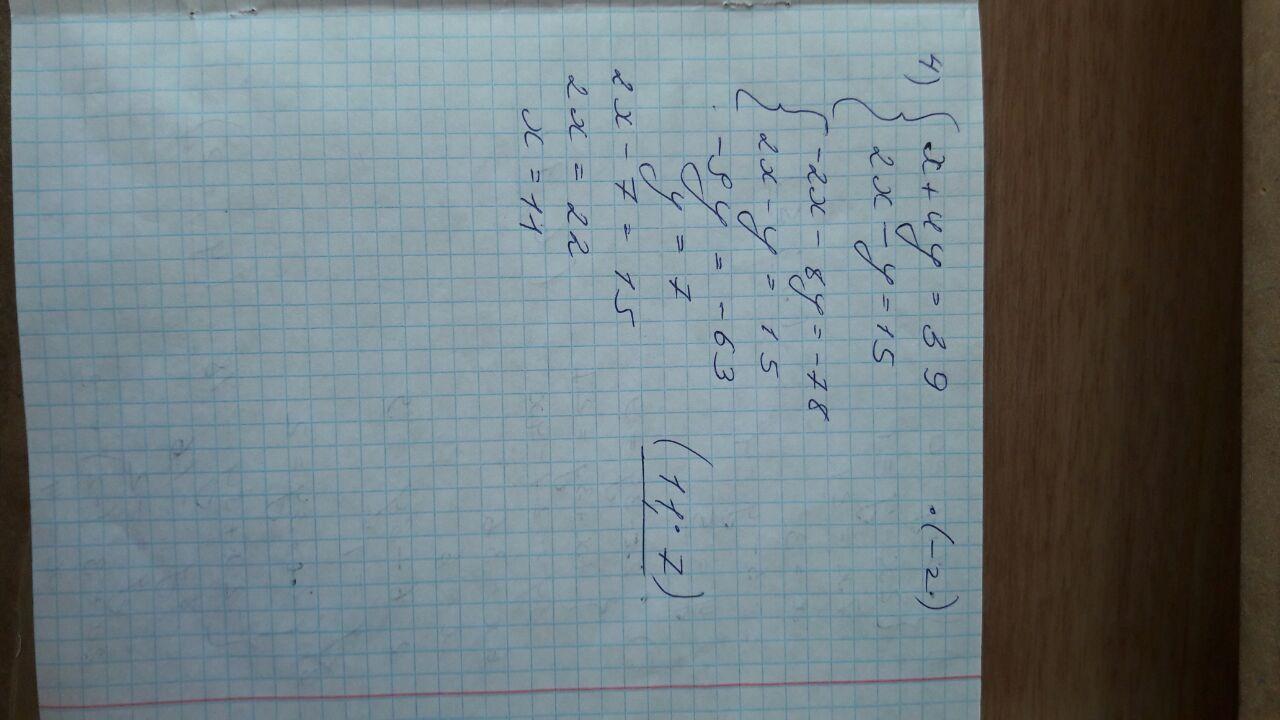 4) { x + 4y = 39 · (-2)
{ 2x - y = 15
{ -2x - 8y = -78
{ 2x - y = 15
-9y = -63
y = 7
2x - 7 = 15
2x = 22
x = 11
(11; 7)